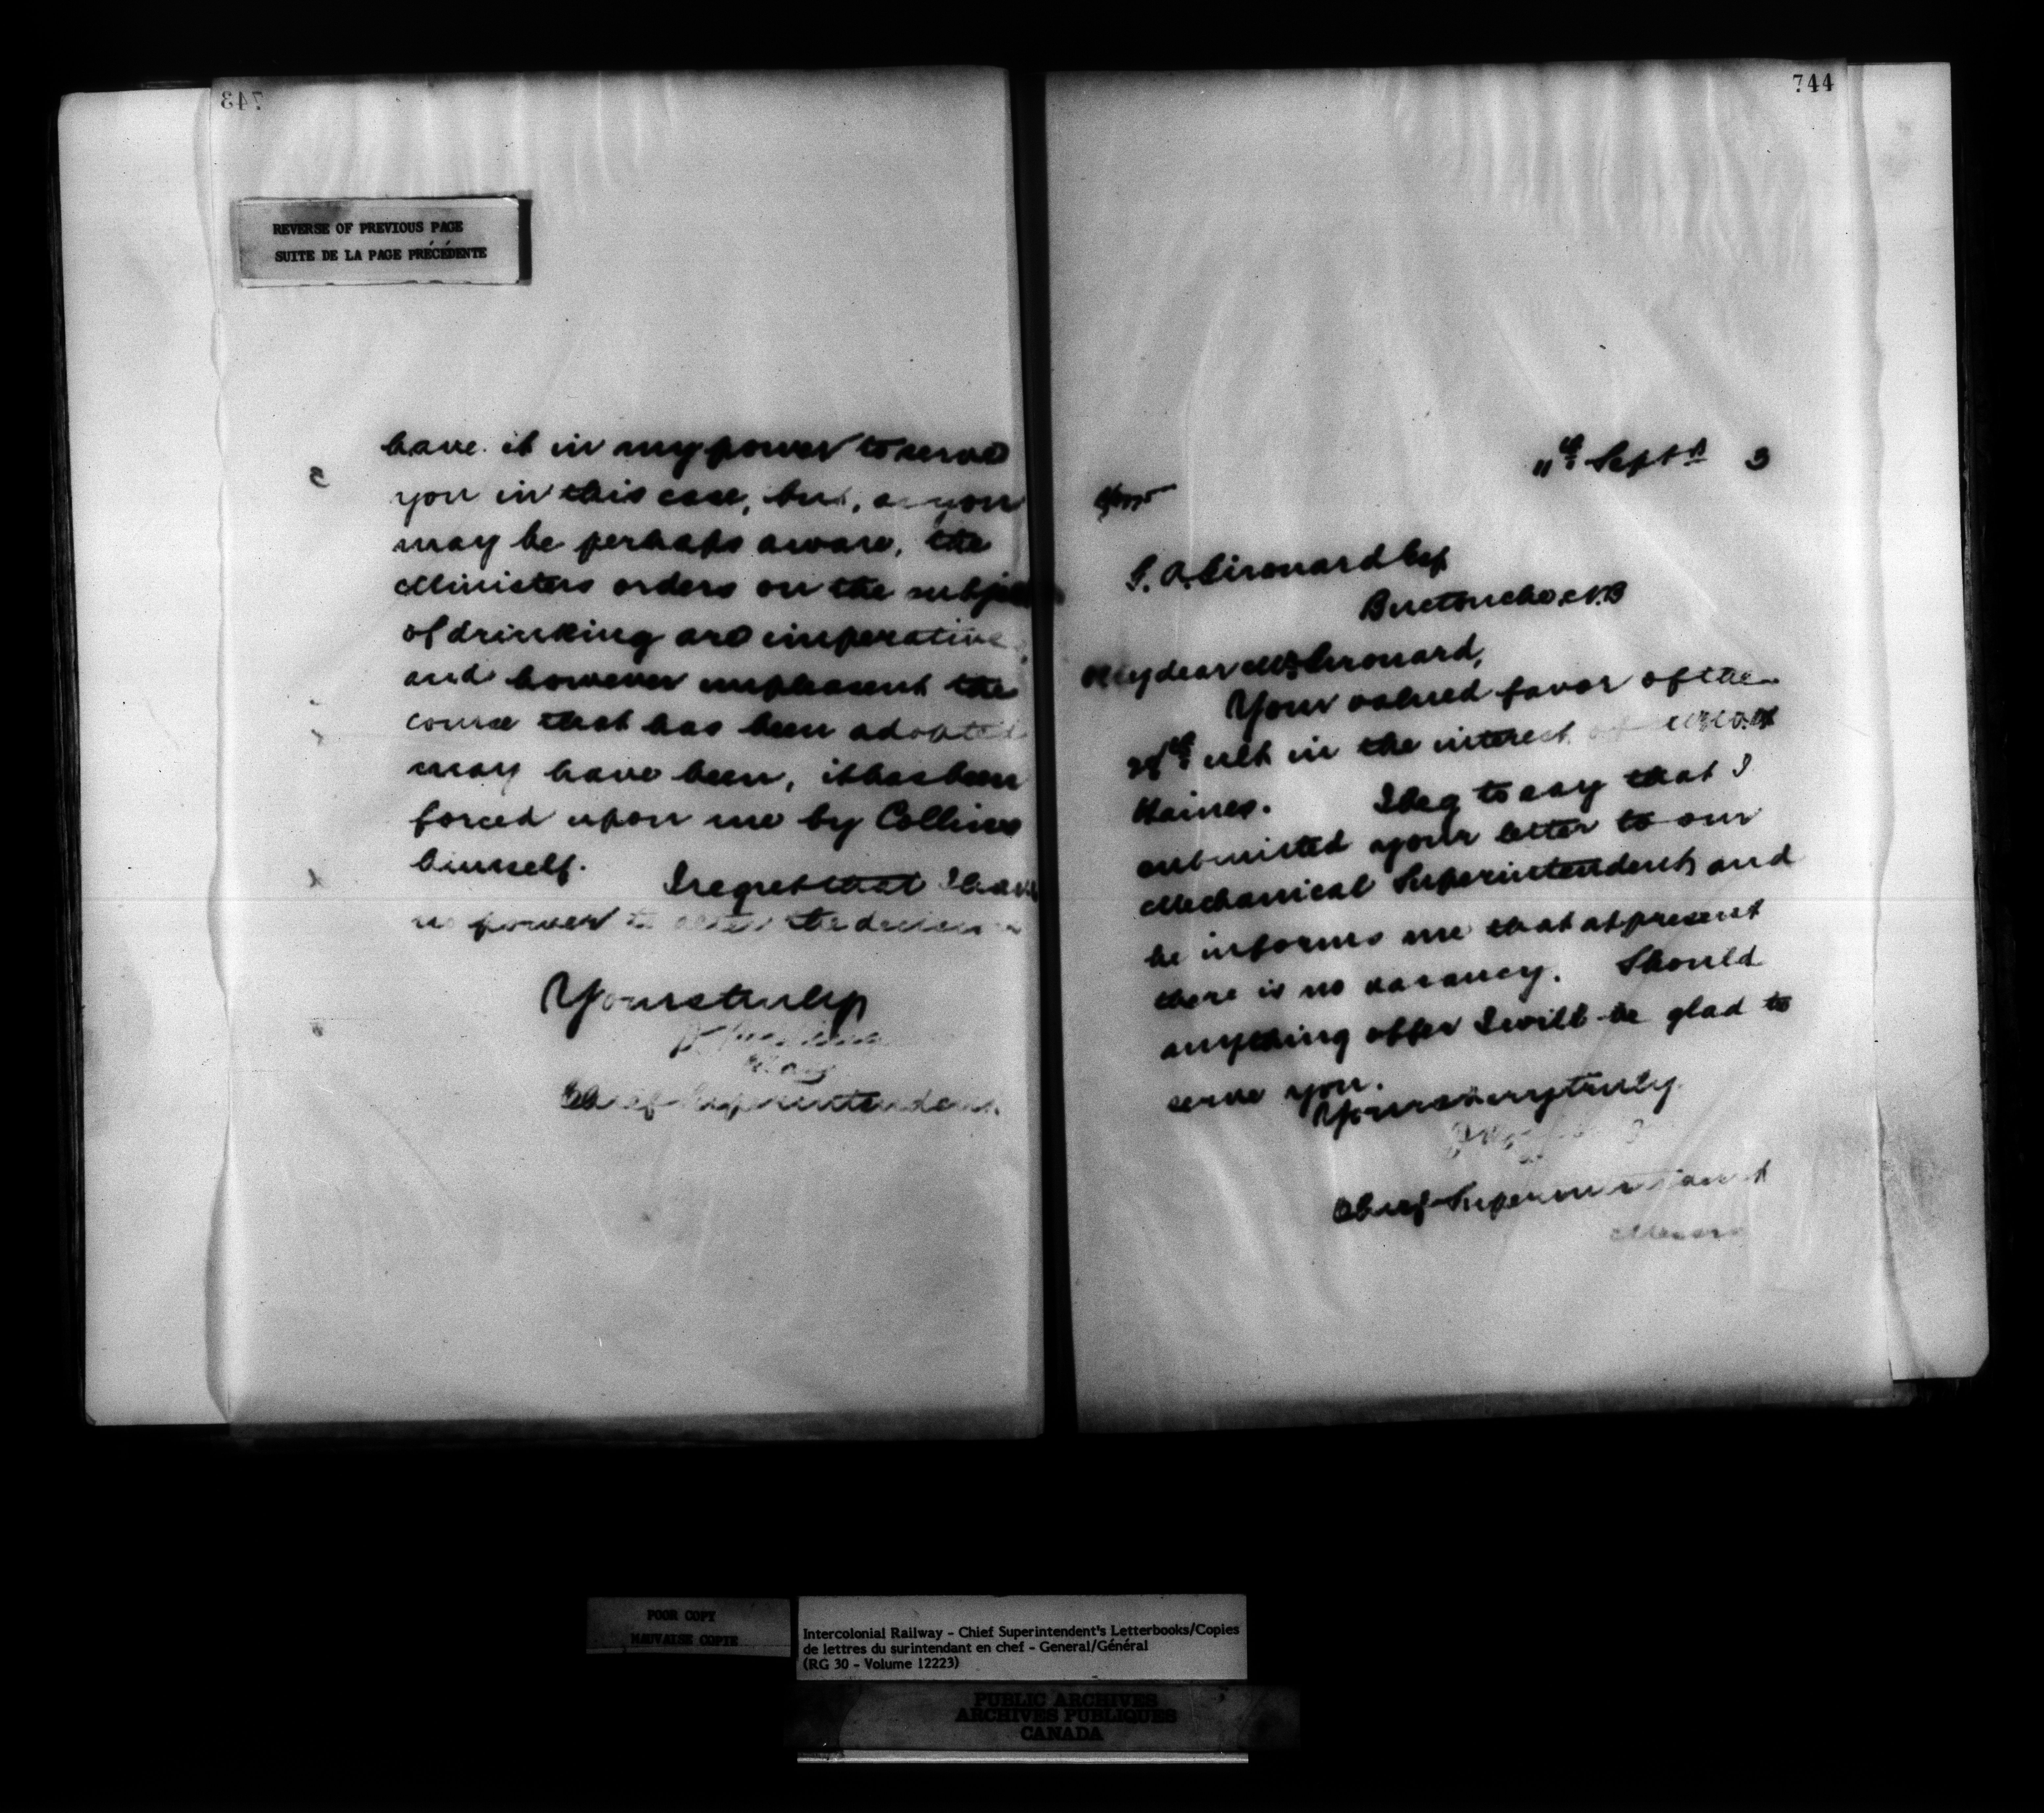 743
REVERSE OF PREVIOUS PAGE
SUITE DE LA PAGE PRÉCÉDENTE
have it in my power to serve
you in this case, but, as you
may be perhaps aware, the
Ministers orders on the subject
of drinking are imperative,
and however unpleasant the
course that has been adopted
may have been, it has been
forced upon me by Collins
himself. I regret that I have
no power to alter the decision
Yours truly
Chief Superintendent
744
11th Septr 3
G. A. Girouard Esq
Buctouche, N.B
My dear Mr Girouard,
Your valued favor of the
28th ult in the interest of
Haines. I beg to say that I
submitted your letter to our
Mechanical Superintendent, and
he informs me that at present
there is no vacancy. Should
anything offer I will be glad to
serve you.
Yours very truly
Chief Superintendent
POOR COPY
MAUVAISE COPIE
Intercolonial Railway - Chief Superintendent's Letterbooks/Copies
de lettres du surintendant en chef - General/Général
(RG 30 - Volume 12223)
PUBLIC ARCHIVES
ARCHIVES PUBLIQUES
CANADA